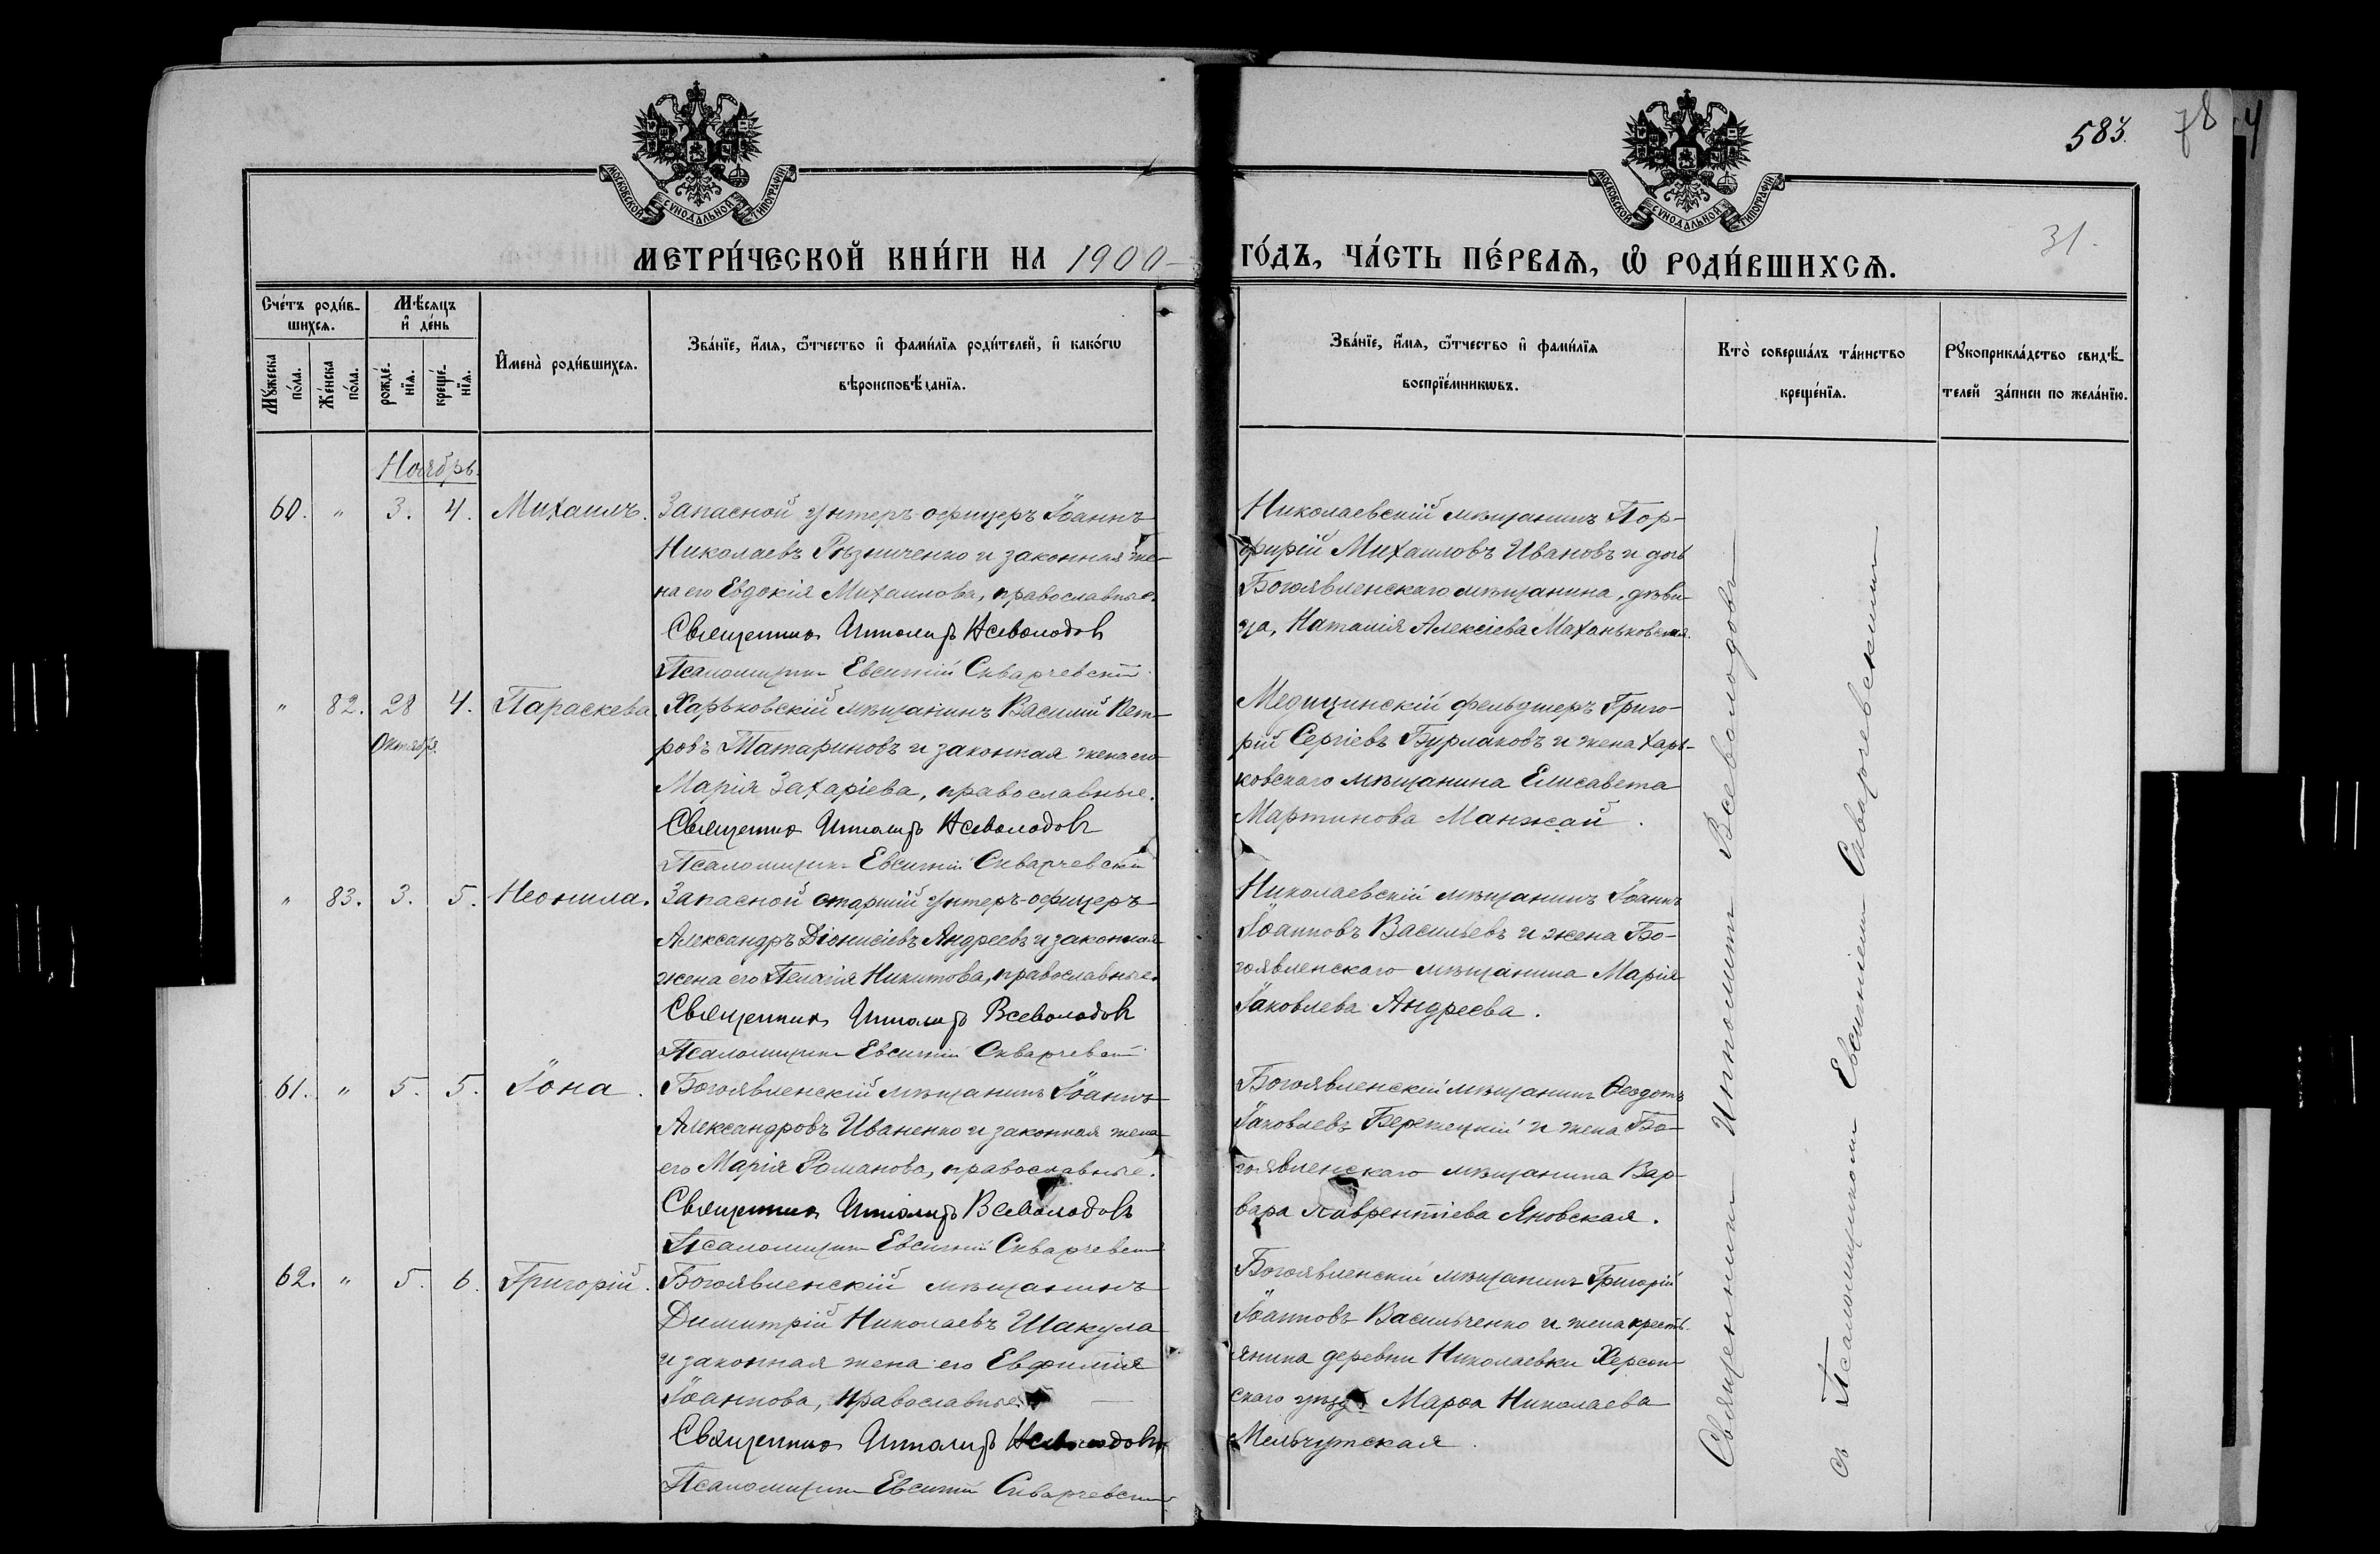 583.
78
4
31.
МОСКОВСКОЙ СѴНОДАЛЬНОЙ ТИПОГРАФІИ
МОСКОВСКОЙ СѴНОДАЛЬНОЙ ТИПОГРАФІИ
МЕТРИ́ЧЕСКОЙ КНИ́ГИ НА 1900 ГО́ДЪ, ЧА́СТЬ ПЕ́РВАѦ, Ѡ҆ РОДИ́ВШИХСѦ.
Сче́тъ роди́в-
шихсѧ.
Мꙋ́жеска
по́ла.
Же́нска
по́ла.
Мѣ́сѧцъ
и҆ де́нь
рожде́-
нїѧ.
креще́-
нїѧ.
И҆мена̀ роди́вшихсѧ.
Зва́нїе, и҆́мѧ, ѻ҆́тчество и҆ фами́лїѧ роди́телей, и҆ како́гѡ
вѣроисповѣ́данїѧ.
Зва́нїе, и҆́мѧ, ѻ҆́тчество и҆ фами́лїѧ
воспрїе́мникѡвъ.
Кто̀ соверша́лъ та́инство
креще́нїѧ.
Рꙋкоприкла́дство свидѣ́-
телей за́писи по жела́нїю.
Ноябрь.
60. " 3. 4. Михаилъ. Запасной унтеръ-офицеръ Іоаннъ
Николаевъ Рѣзниченко и законная же-
на его Евдокія Михаилова, православные.
Священникъ Ипполитъ Всеволодовъ
Псаломщикъ Евсигній Скварчевскій
Николаевскій мѣщанинъ Пор-
фирій Михаиловъ Ивановъ и дочь
Богоявленскаго мѣщанина, дѣви-
ца, Наталія Алексіева Маханьковская.
" 82. 28 4. Параскева. Харьковскій мѣщанинъ Василій Пет-
Октября.
ровъ Татариновъ и законная жена его
Марія Захаріева, православные.
Священникъ Ипполитъ Всеволодовъ
Псаломщикъ Евсигній Скварчевскій
Медицинскій фельдшеръ Григо-
рій Сергіевъ Бурлаковъ и жена Харь-
ковскаго мѣщанина Елисавета
Мартинова Манжай.
" 83. 3. 5. Неонила. Запасной старшій унтеръ-офицеръ
Александръ Діонисіевъ Андреевъ и законная
жена его Пелагія Никитова, православные.
Священникъ Ипполитъ Всеволодовъ
Псаломщикъ Евсигній Скварчевскій
Николаевскій мѣщанинъ Іоаннъ
Іоанновъ Васильевъ и жена Бо-
гоявленскаго мѣщанина Марія
Іаковлева Андреева.
61. " 5. 5. Іона. Богоявленскій мѣщанинъ Іоаннъ
Александровъ Иваненко и законная жена
его Марія Романова, православные.
Священникъ Ипполитъ Всеволодовъ
Псаломщикъ Евсигній Скварчевскій
Богоявленскій мѣщанинъ Ѳеодотъ
Іаковлевъ Бережецкій и жена Бо-
гоявленскаго мѣщанина Вар-
вара Лаврентіева Яновская.
62. " 5. 6. Григорій. Богоявленскій мѣщанинъ
Димитрій Николаевъ Шакула
и законная жена его Евфимія
Іоаннова, православные.
Священникъ Ипполитъ Всеволодовъ
Псаломщикъ Евсигній Скварчевскій
Богоявленскій мѣщанинъ Григорій
Іоанновъ Васильченко и жена кресть-
янина деревни Николаевки Херсон-
скаго уѣзда Марѳа Николаева
Священникъ Ипполитъ Всеволодовъ
съ Псаломщикомъ Евсигніемъ Скварчевскимъ